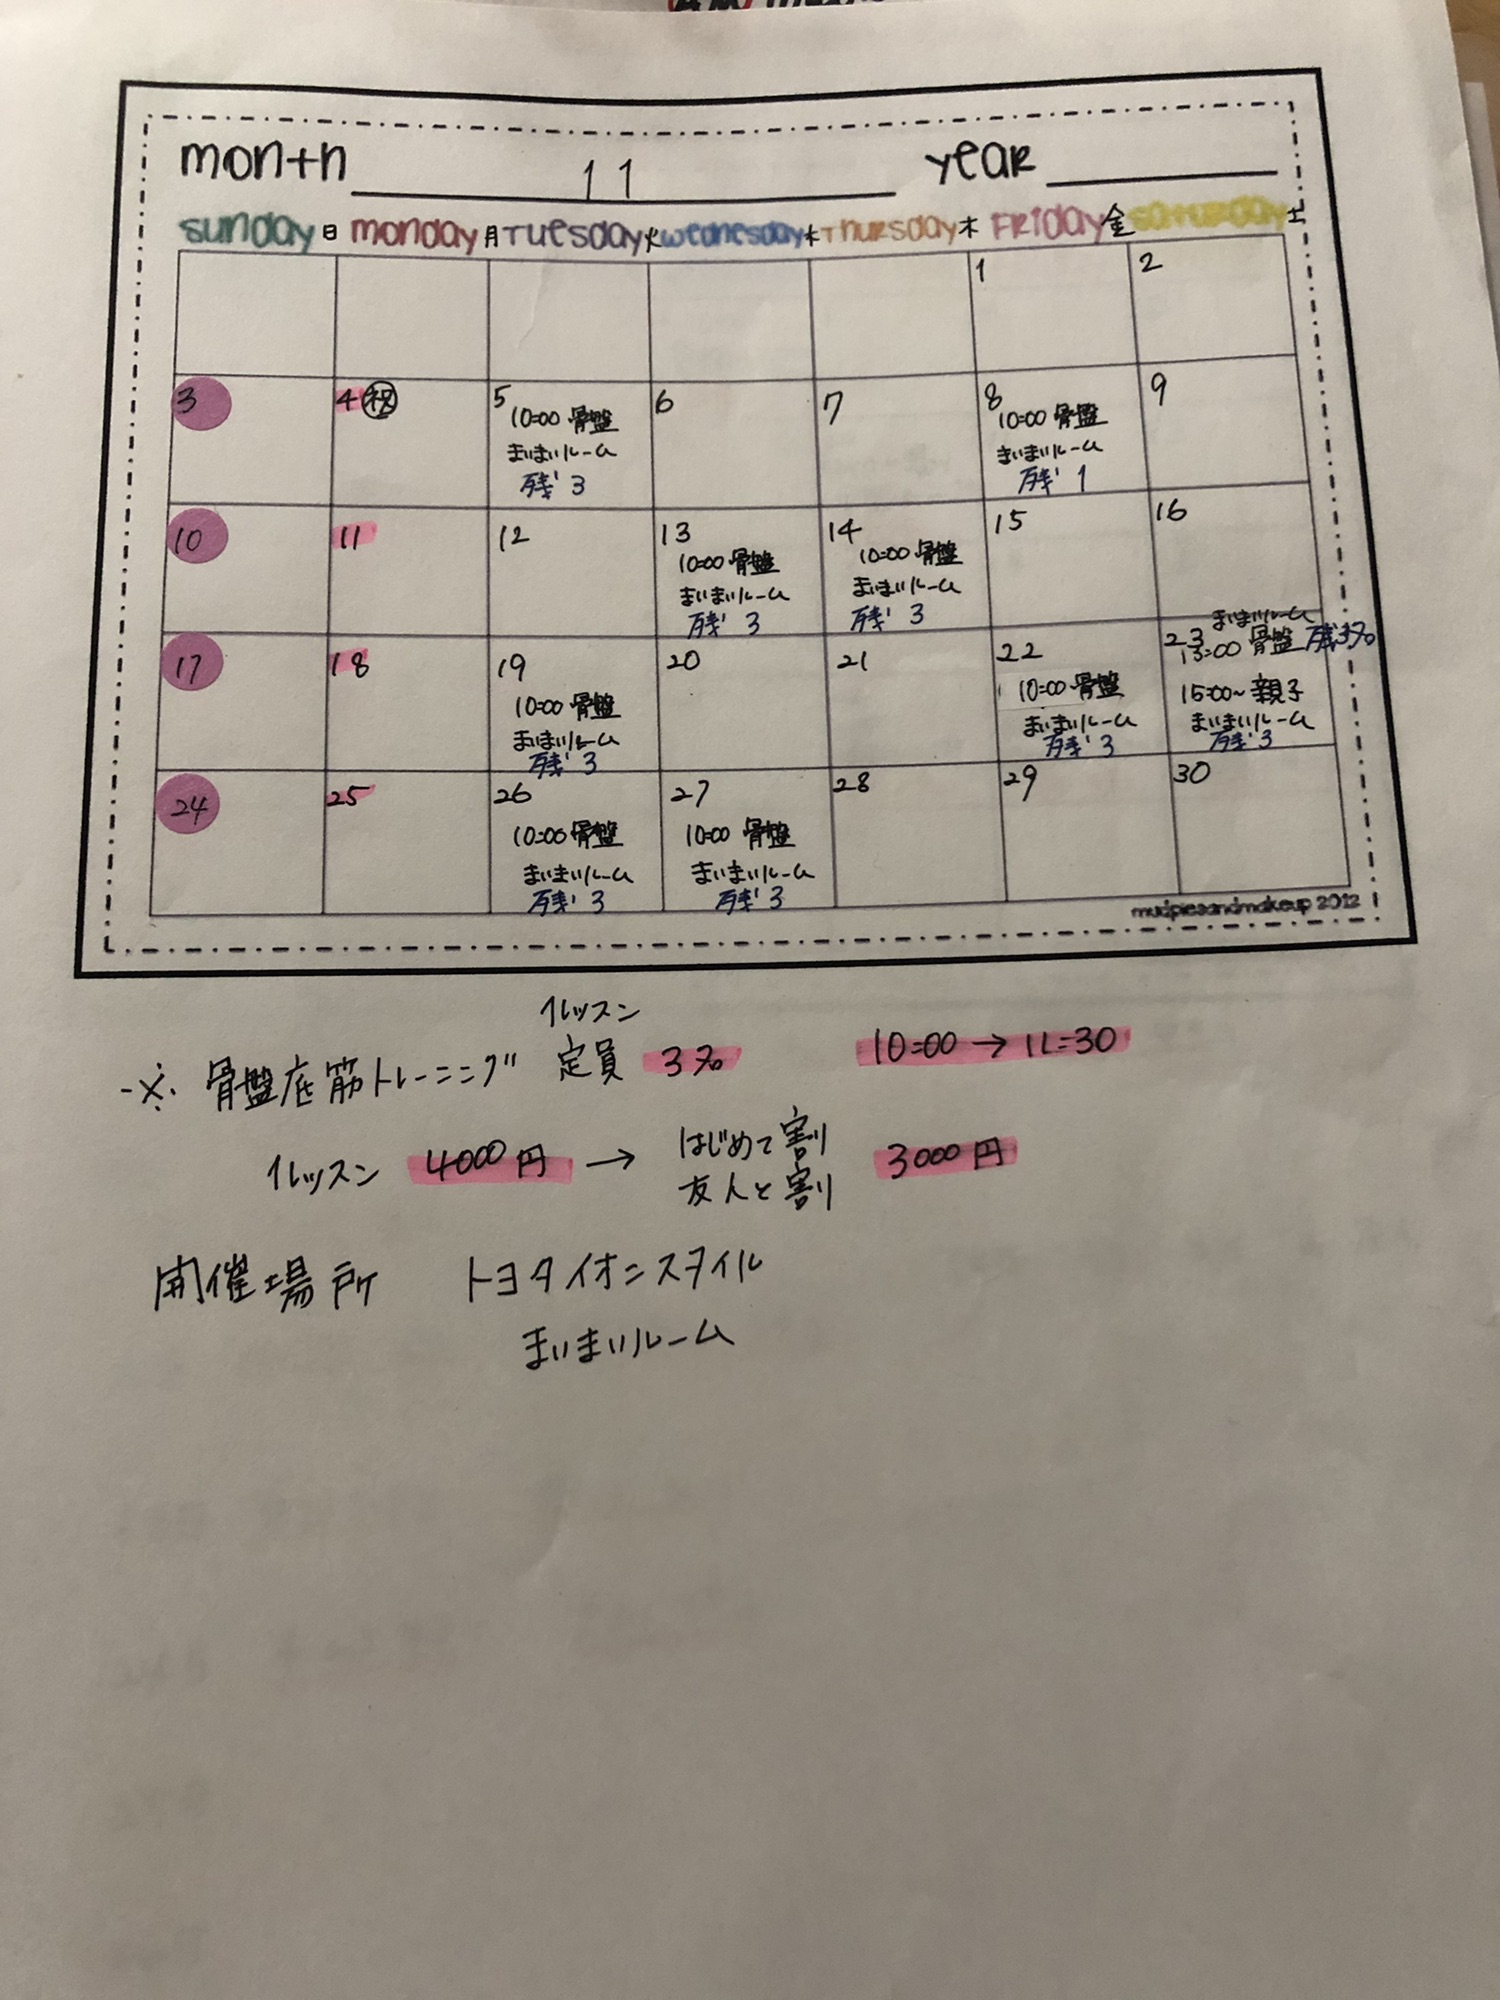 month 11 year
sunday 日 monday 月 Tuesday 火 wednesday 水 Thursday 木 FRiday 金 saturday 土
1 2
3 4 ㊗ 5 6 7 8 9
10:00 骨盤 10:00 骨盤
まいまいルーム まいまいルーム
残り 3 残り 1
10 11 12 13 14 15 16
10:00 骨盤 10:00 骨盤
まいまいルーム まいまいルーム
残り 3 残り 3
17 18 19 20 21 22 23
まいまいルーム
13:00 骨盤 残3名
10:00 骨盤 10:00 骨盤 15:00〜親子
まいまいルーム まいまいルーム まいまいルーム
残り 3 残り 3 残り 3
24 25 26 27 28 29 30
10:00 骨盤 10:00 骨盤
まいまいルーム まいまいルーム
残り 3 残り 3
mudpiesandmakeup 2012
1レッスン
※ 骨盤底筋トレーニング 定員 3名 10:00 → 11:30
1レッスン 4000円 → はじめて割 3000円
友人と割
開催場所 トヨタイオンスタイル
まいまいルーム